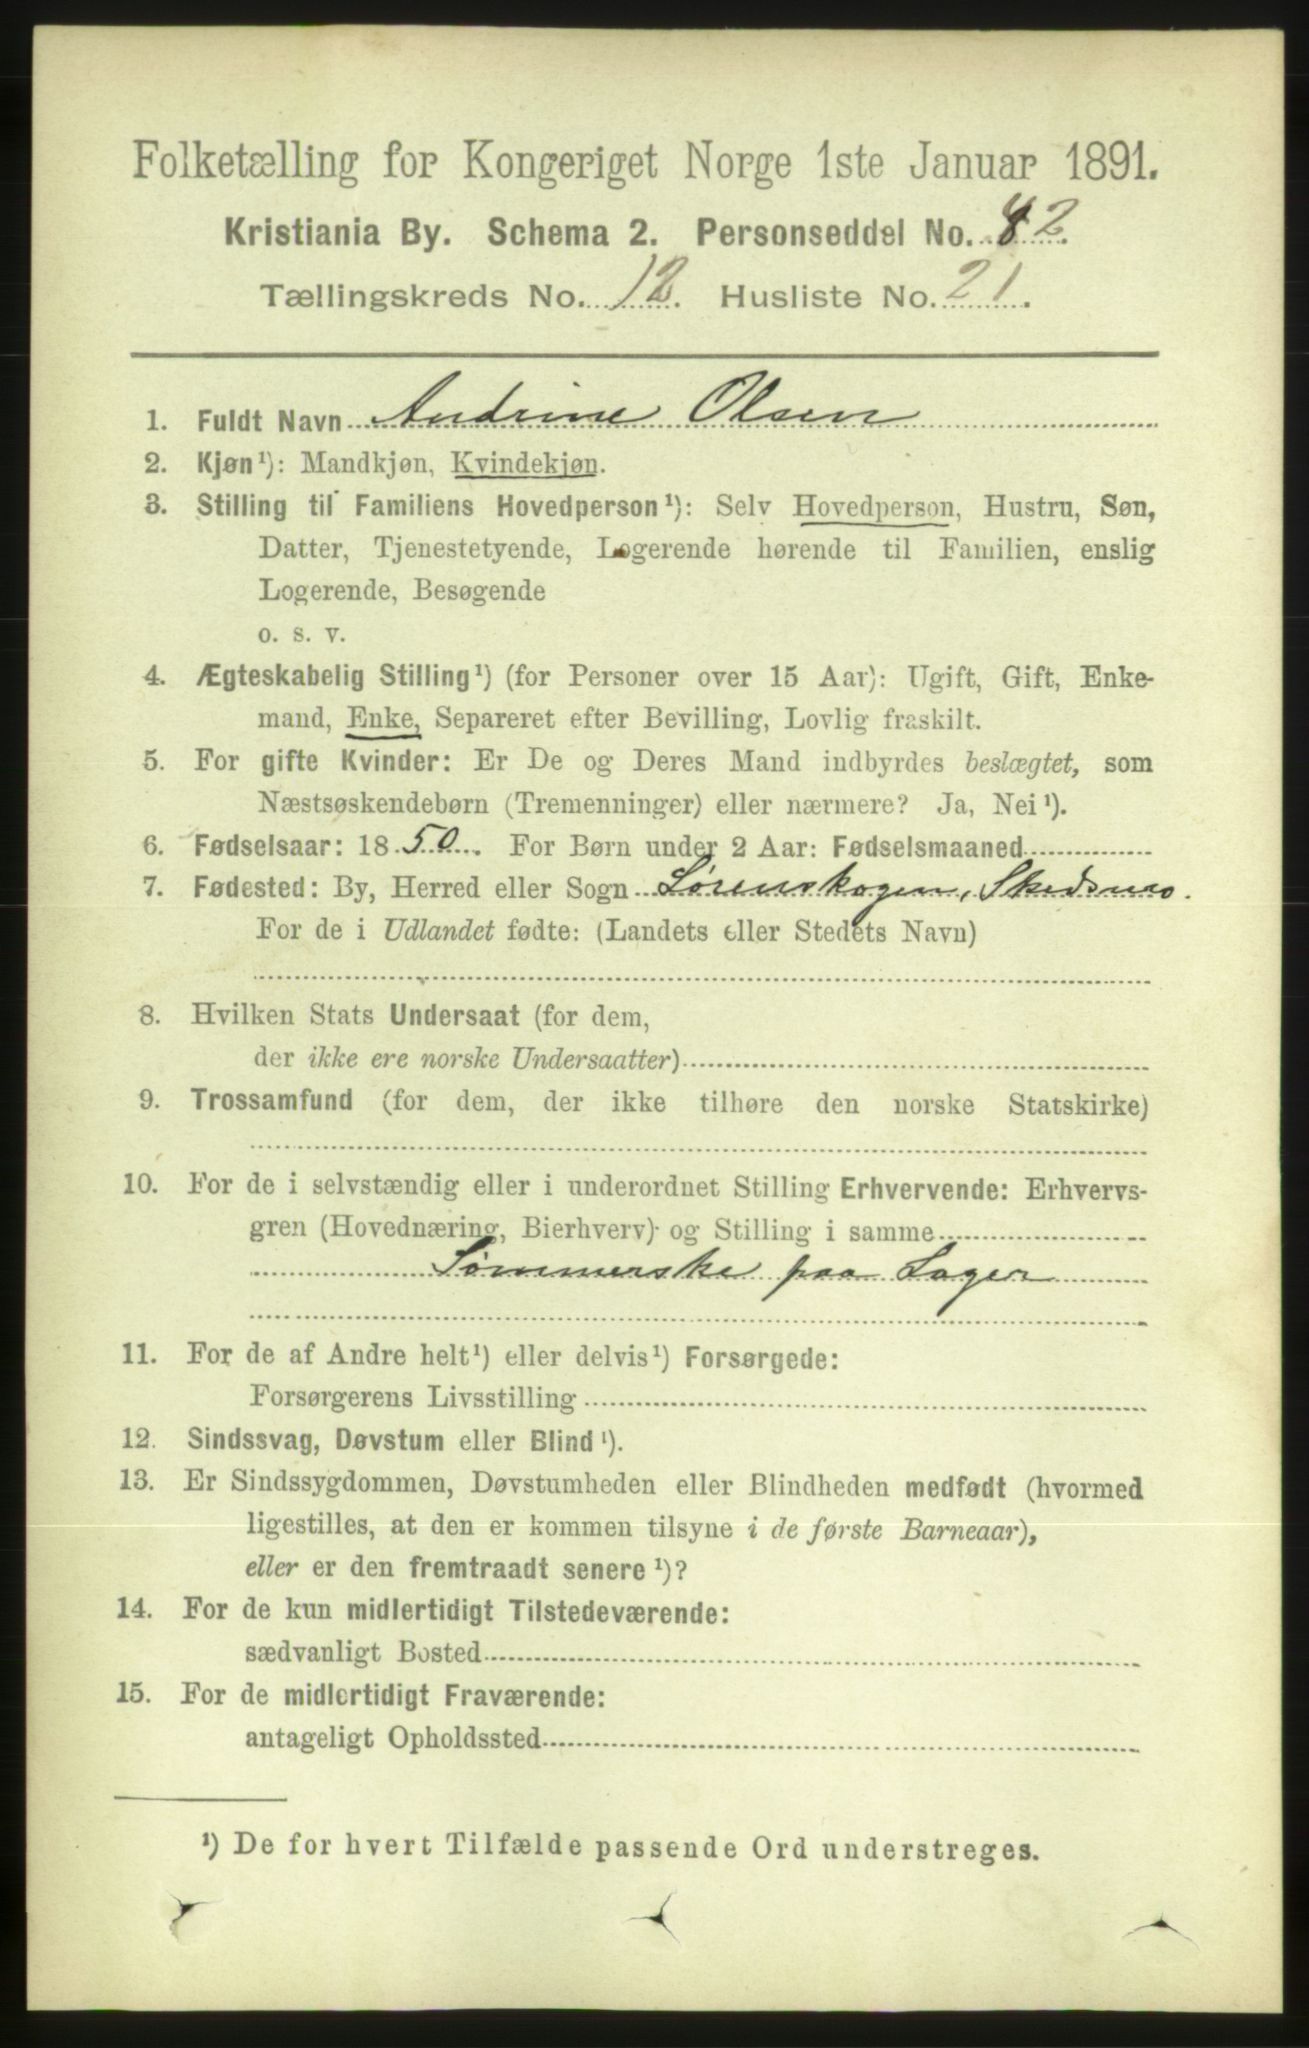 Folketælling for Kongeriget Norge 1ste Januar 1891.
Kristiania By. Schema 2. Personseddel No. 82.
Tællingskreds No. 12. Husliste No. 21.
1. Fuldt Navn Andrine Olsen
2. Kjøn¹): Mandkjøn, Kvindekjøn.
3. Stilling til Familiens Hovedperson¹): Selv Hovedperson, Hustru, Søn,
Datter, Tjenestetyende, Logerende hørende til Familien, enslig
Logerende, Besøgende
o. s. v.
4. Ægteskabelig Stilling¹) (for Personer over 15 Aar): Ugift, Gift, Enke-
mand, Enke, Separeret efter Bevilling, Lovlig fraskilt.
5. For gifte Kvinder: Er De og Deres Mand indbyrdes beslægtet, som
Næstsøskendebørn (Tremenninger) eller nærmere? Ja, Nei¹).
6. Fødselsaar: 1850. For Børn under 2 Aar: Fødselsmaaned
7. Fødested: By, Herred eller Sogn Lørenskogen, Skedsmo.
For de i Udlandet fødte: (Landets eller Stedets Navn)
8. Hvilken Stats Undersaat (for dem,
der ikke ere norske Undersaatter)
9. Trossamfund (for dem, der ikke tilhøre den norske Statskirke)
10. For de i selvstændig eller i underordnet Stilling Erhvervende: Erhvervs-
gren (Hovednæring, Bierhverv) og Stilling i samme
Sømmerske paa Lager
11. For de af Andre helt¹) eller delvis¹) Forsørgede:
Forsørgerens Livsstilling
12. Sindssvag, Døvstum eller Blind¹).
13. Er Sindssygdommen, Døvstumheden eller Blindheden medfødt (hvormed
ligestilles, at den er kommen tilsyne i de første Barneaar),
eller er den fremtraadt senere¹)?
14. For de kun midlertidigt Tilstedeværende:
sædvanligt Bosted
15. For de midlertidigt Fraværende:
antageligt Opholdssted
¹) De for hvert Tilfælde passende Ord understreges.